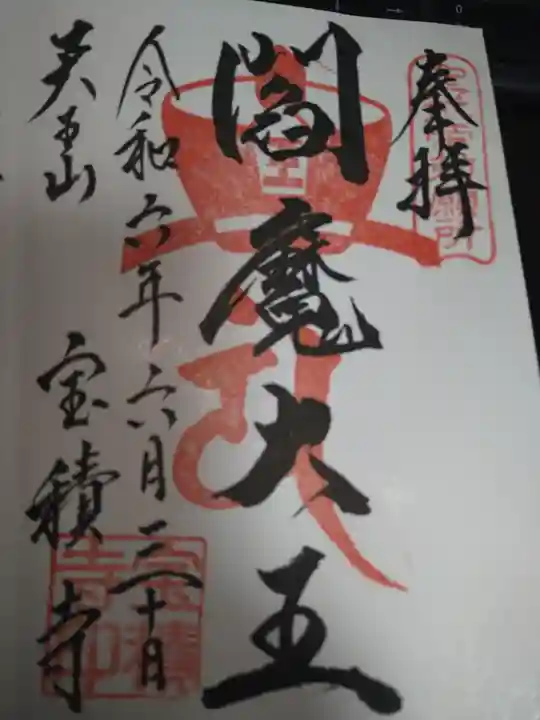 奉拝
閻魔大王
令和六年六月三十日
天王山
宝積寺